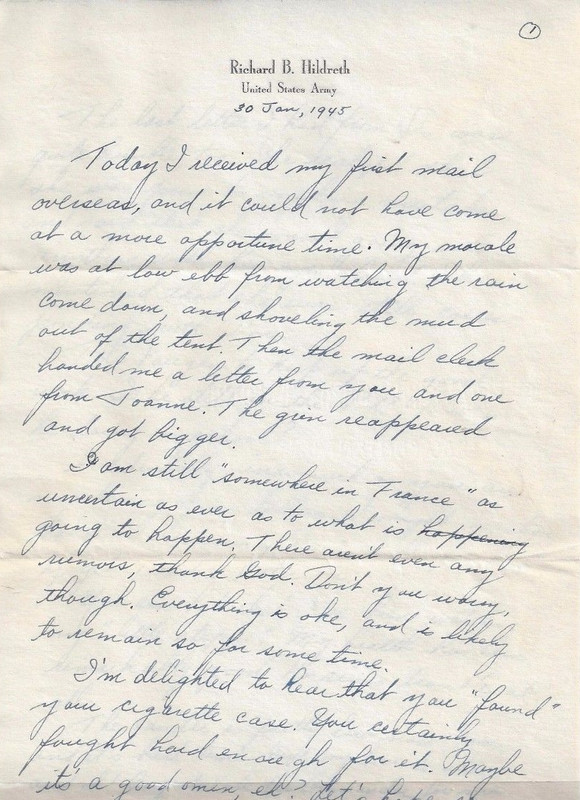 1
Richard B. Hildreth
United States Army
30 Jan, 1945
Today I received my first mail
overseas, and it could not have come
at a more opportune time. My morale
was at low ebb from watching the rain
come down, and shoveling the mud
out of the tent. Then the mail clerk
handed me a letter from you and one
from Joanne. The grin reappeared
and got bigger.
I am still "somewhere in France" as
uncertain as ever as to what is happening
going to happen. There aren't even any
rumors, thank God. Don't you worry,
though. Everything is oke, and is likely
to remain so for some time.
I'm delighted to hear that you "found"
your cigarette case. You certainly
fought hard enough for it. Maybe
it's a good omen, eh? Let's hope so